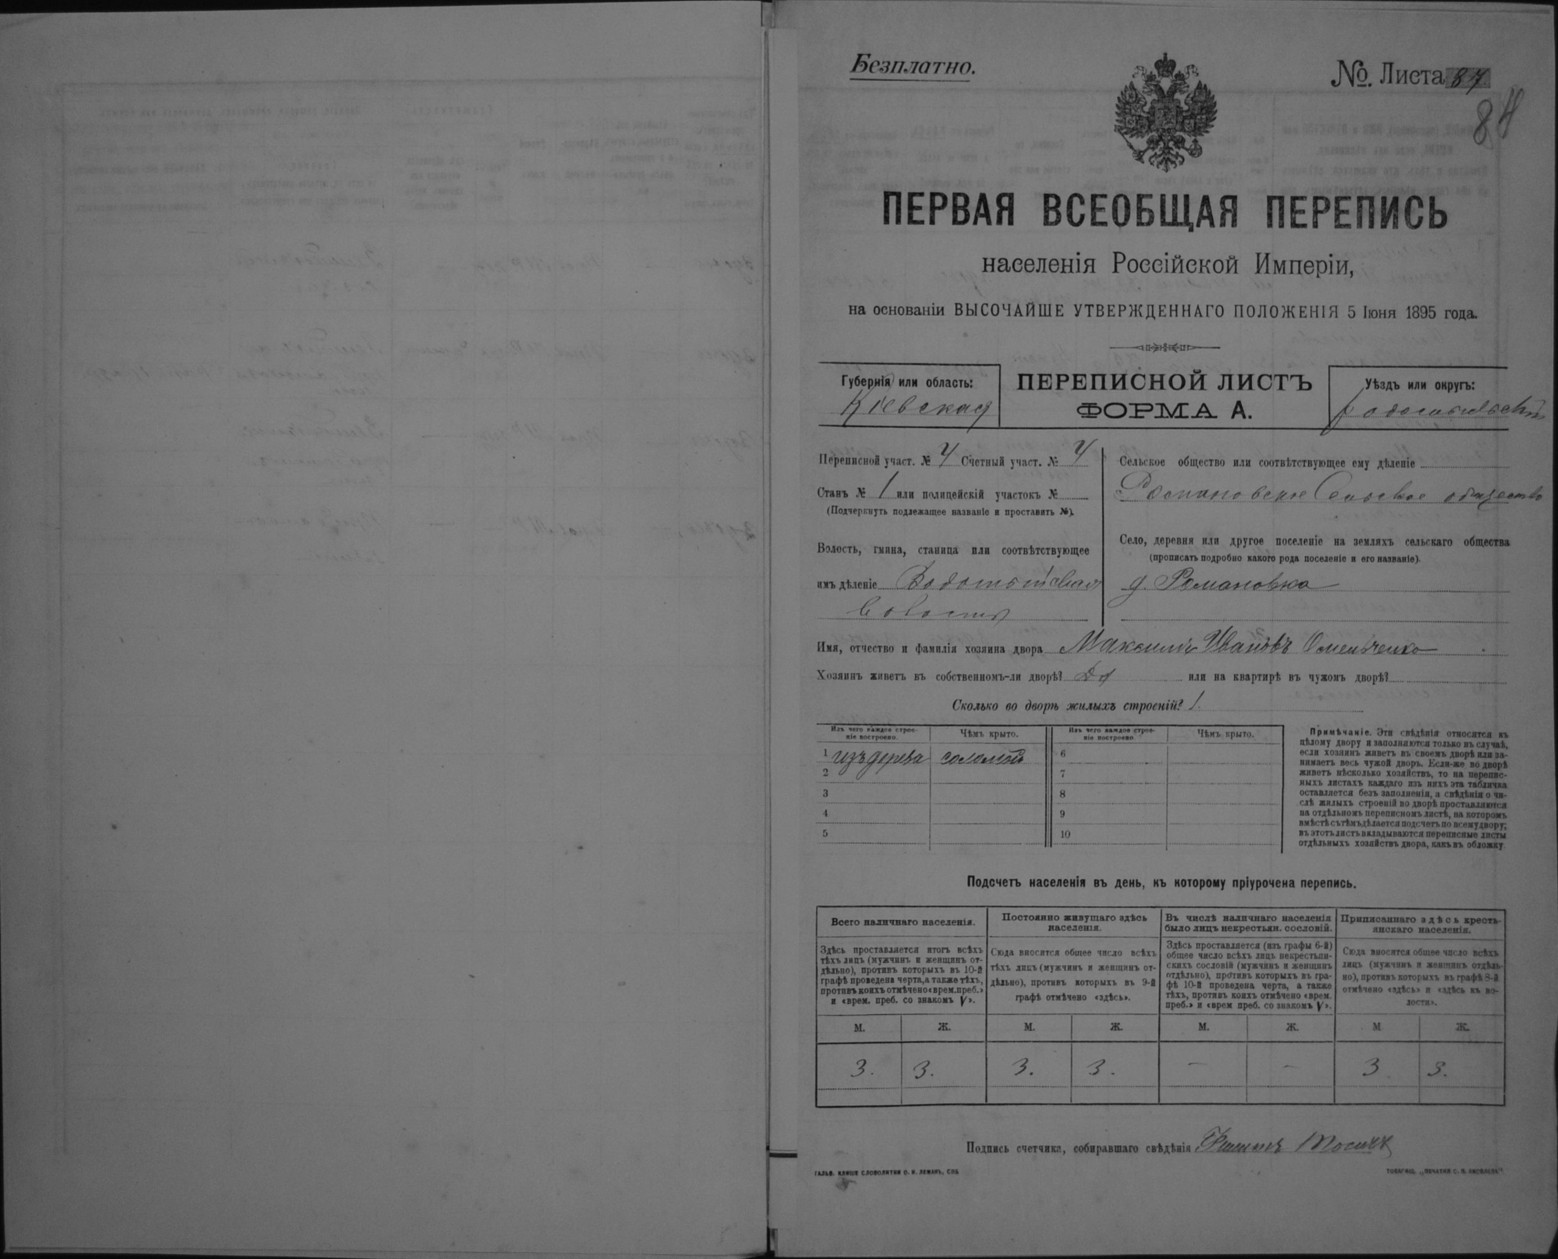 Безплатно.
№. Листа 87
84
ПЕРВАЯ ВСЕОБЩАЯ ПЕРЕПИСЬ
населенія Россійской Имперіи,
на основаніи ВЫСОЧАЙШЕ УТВЕРЖДЕННАГО ПОЛОЖЕНІЯ 5 Іюня 1895 года.
Губернія или область:
Кіевская
ПЕРЕПИСНОЙ ЛИСТЪ
ФОРМА А.
Уѣздъ или округъ:
Переписной участ. № 4 Счетный участ. № 4
Станъ № 1 или полицейскій участокъ №
(Подчеркнуть подлежащее названіе и проставить №).
Волость, гмина, станица или соотвѣтствующее
имъ дѣленіе
волость
Сельское общество или соотвѣтствующее ему дѣленіе
Романовское Сельское общество
Село, деревня или другое поселеніе на земляхъ сельскаго общества
(прописать подробно какого рода поселеніе и его названіе).
д. Романовка
Имя, отчество и фамилія хозяина двора Максимъ Ивановъ Омельченко
Хозяинъ живетъ въ собственномъ-ли дворѣ? Да или на квартирѣ въ чужомъ дворѣ?
Сколько во дворѣ жилыхъ строеній? 1.
Изъ чего каждое строе-
ніе построено.
Чѣмъ крыто.
Изъ чего каждое строе-
ніе построено
Чѣмъ крыто.
1 изъ дерева соломой 6
2 7
3 8
4 9
5 10
Примѣчаніе. Эти свѣдѣнія относятся къ
цѣлому двору и заполняются только въ случаѣ,
если хозяинъ живетъ въ своемъ дворѣ или за-
нимаетъ весь чужой дворъ. Если-же во дворѣ
живетъ нѣсколько хозяйствъ, то на перепис-
ныхъ листахъ каждаго изъ нихъ эта табличка
оставляется безъ заполненія, а свѣдѣнія о чи-
слѣ жилыхъ строеній во дворѣ проставляются
на отдѣльномъ переписномъ листѣ, на которомъ
вмѣстѣ съ тѣмъ дѣлается подсчетъ по всему двору;
въ этотъ листъ вкладываются переписные листы
отдѣльныхъ хозяйствъ двора, какъ въ обложку.
Подсчетъ населенія въ день, къ которому пріурочена перепись.
Всего наличнаго населенія.
Здѣсь проставляется итогъ всѣхъ
тѣхъ лицъ (мужчинъ и женщинъ от-
дѣльно), противъ которыхъ въ 10-й
графѣ проведена черта, а также тѣхъ,
противъ коихъ отмѣчено «врем. преб.»
и «врем. преб. со знакомъ V».
Постоянно живущаго здѣсь
населенія.
Сюда вносится общее число всѣхъ
тѣхъ лицъ (мужчинъ и женщинъ от-
дѣльно), противъ которыхъ въ 9-й
графѣ отмѣчено «здѣсь».
Въ числѣ наличнаго населенія
было лицъ некрестьян. сословій.
Здѣсь проставляется (изъ графы 6-й)
общее число всѣхъ лицъ некрестьян-
скихъ сословій (мужчинъ и женщинъ
отдѣльно), противъ которыхъ въ гра-
фѣ 10-й проведена черта, а также
тѣхъ, противъ коихъ отмѣчено «врем.
преб.» и «врем преб. со знакомъ V».
Приписаннаго здѣсь кресть-
янскаго населенія.
Сюда вносится общее число всѣхъ
лицъ (мужчинъ и женщинъ отдѣль-
но), противъ которыхъ въ графѣ 8-й
отмѣчено «здѣсь» и «здѣсь въ во-
лости».
М. Ж. М. Ж. М. Ж. М Ж.
3. 3. 3. 3. – – 3 3.
Подпись счетчика, собиравшаго свѣдѣнія